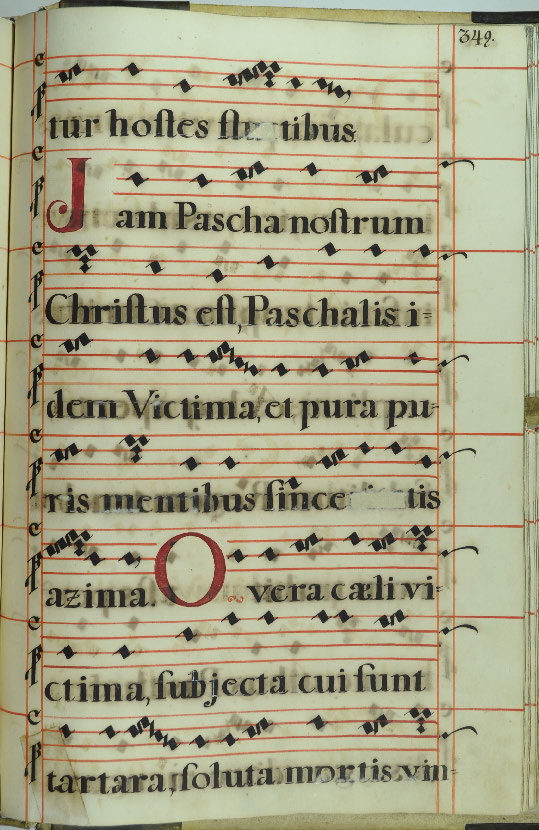 349.
tur hoſtes fluctibus
Jam Pascha noſtrum
Chriſtus eſt, Paschalis i=
dem Victima, et pura pu=
ris mentibus ſince tis
azima. O vera cæli vi=
ctima, ſubjecta cui ſunt
tartara, ſoluta mortis vin=